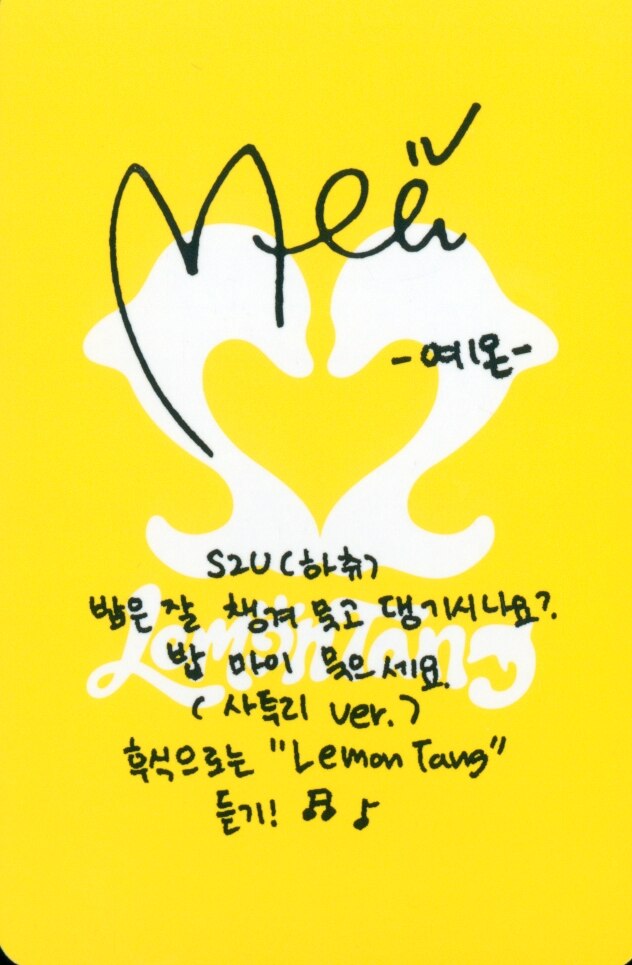 -예온-
S2U (하츄)
밥은 잘 챙겨 묵고 댕기시나요?
Lemon Tang
밥 마이 묵으세요.
(사투리 ver.)
후식으로는 "Lemon Tang"
듣기! ♬ ♪